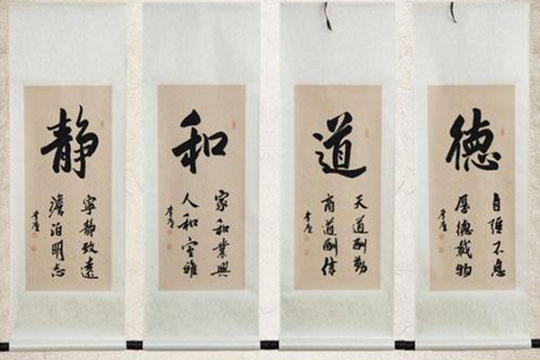 德
自強不息
厚德載物
道
天道酬勤
商道酬信
和
家和業興
人和室雅
静
寧静致遠
澹泊明志